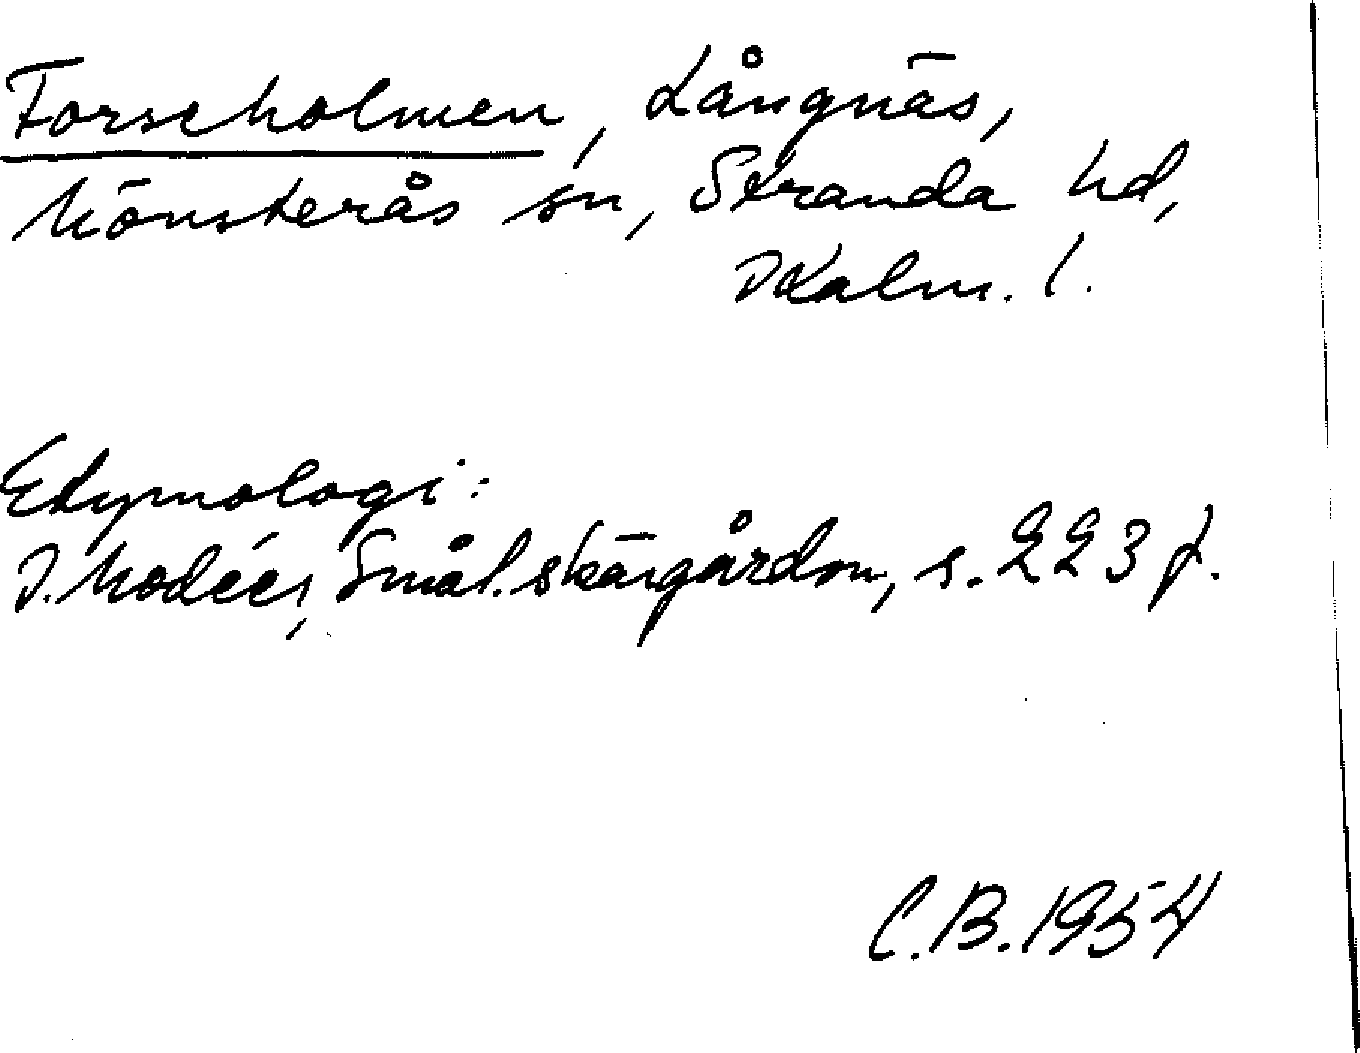 Forseholmen, Långnäs,
Mönsterås sn, Stranda hd,
Kalm. l.
Etymologi:
I. Modéer, Smål. skärgården, s. 223 f.
C.B. 1954